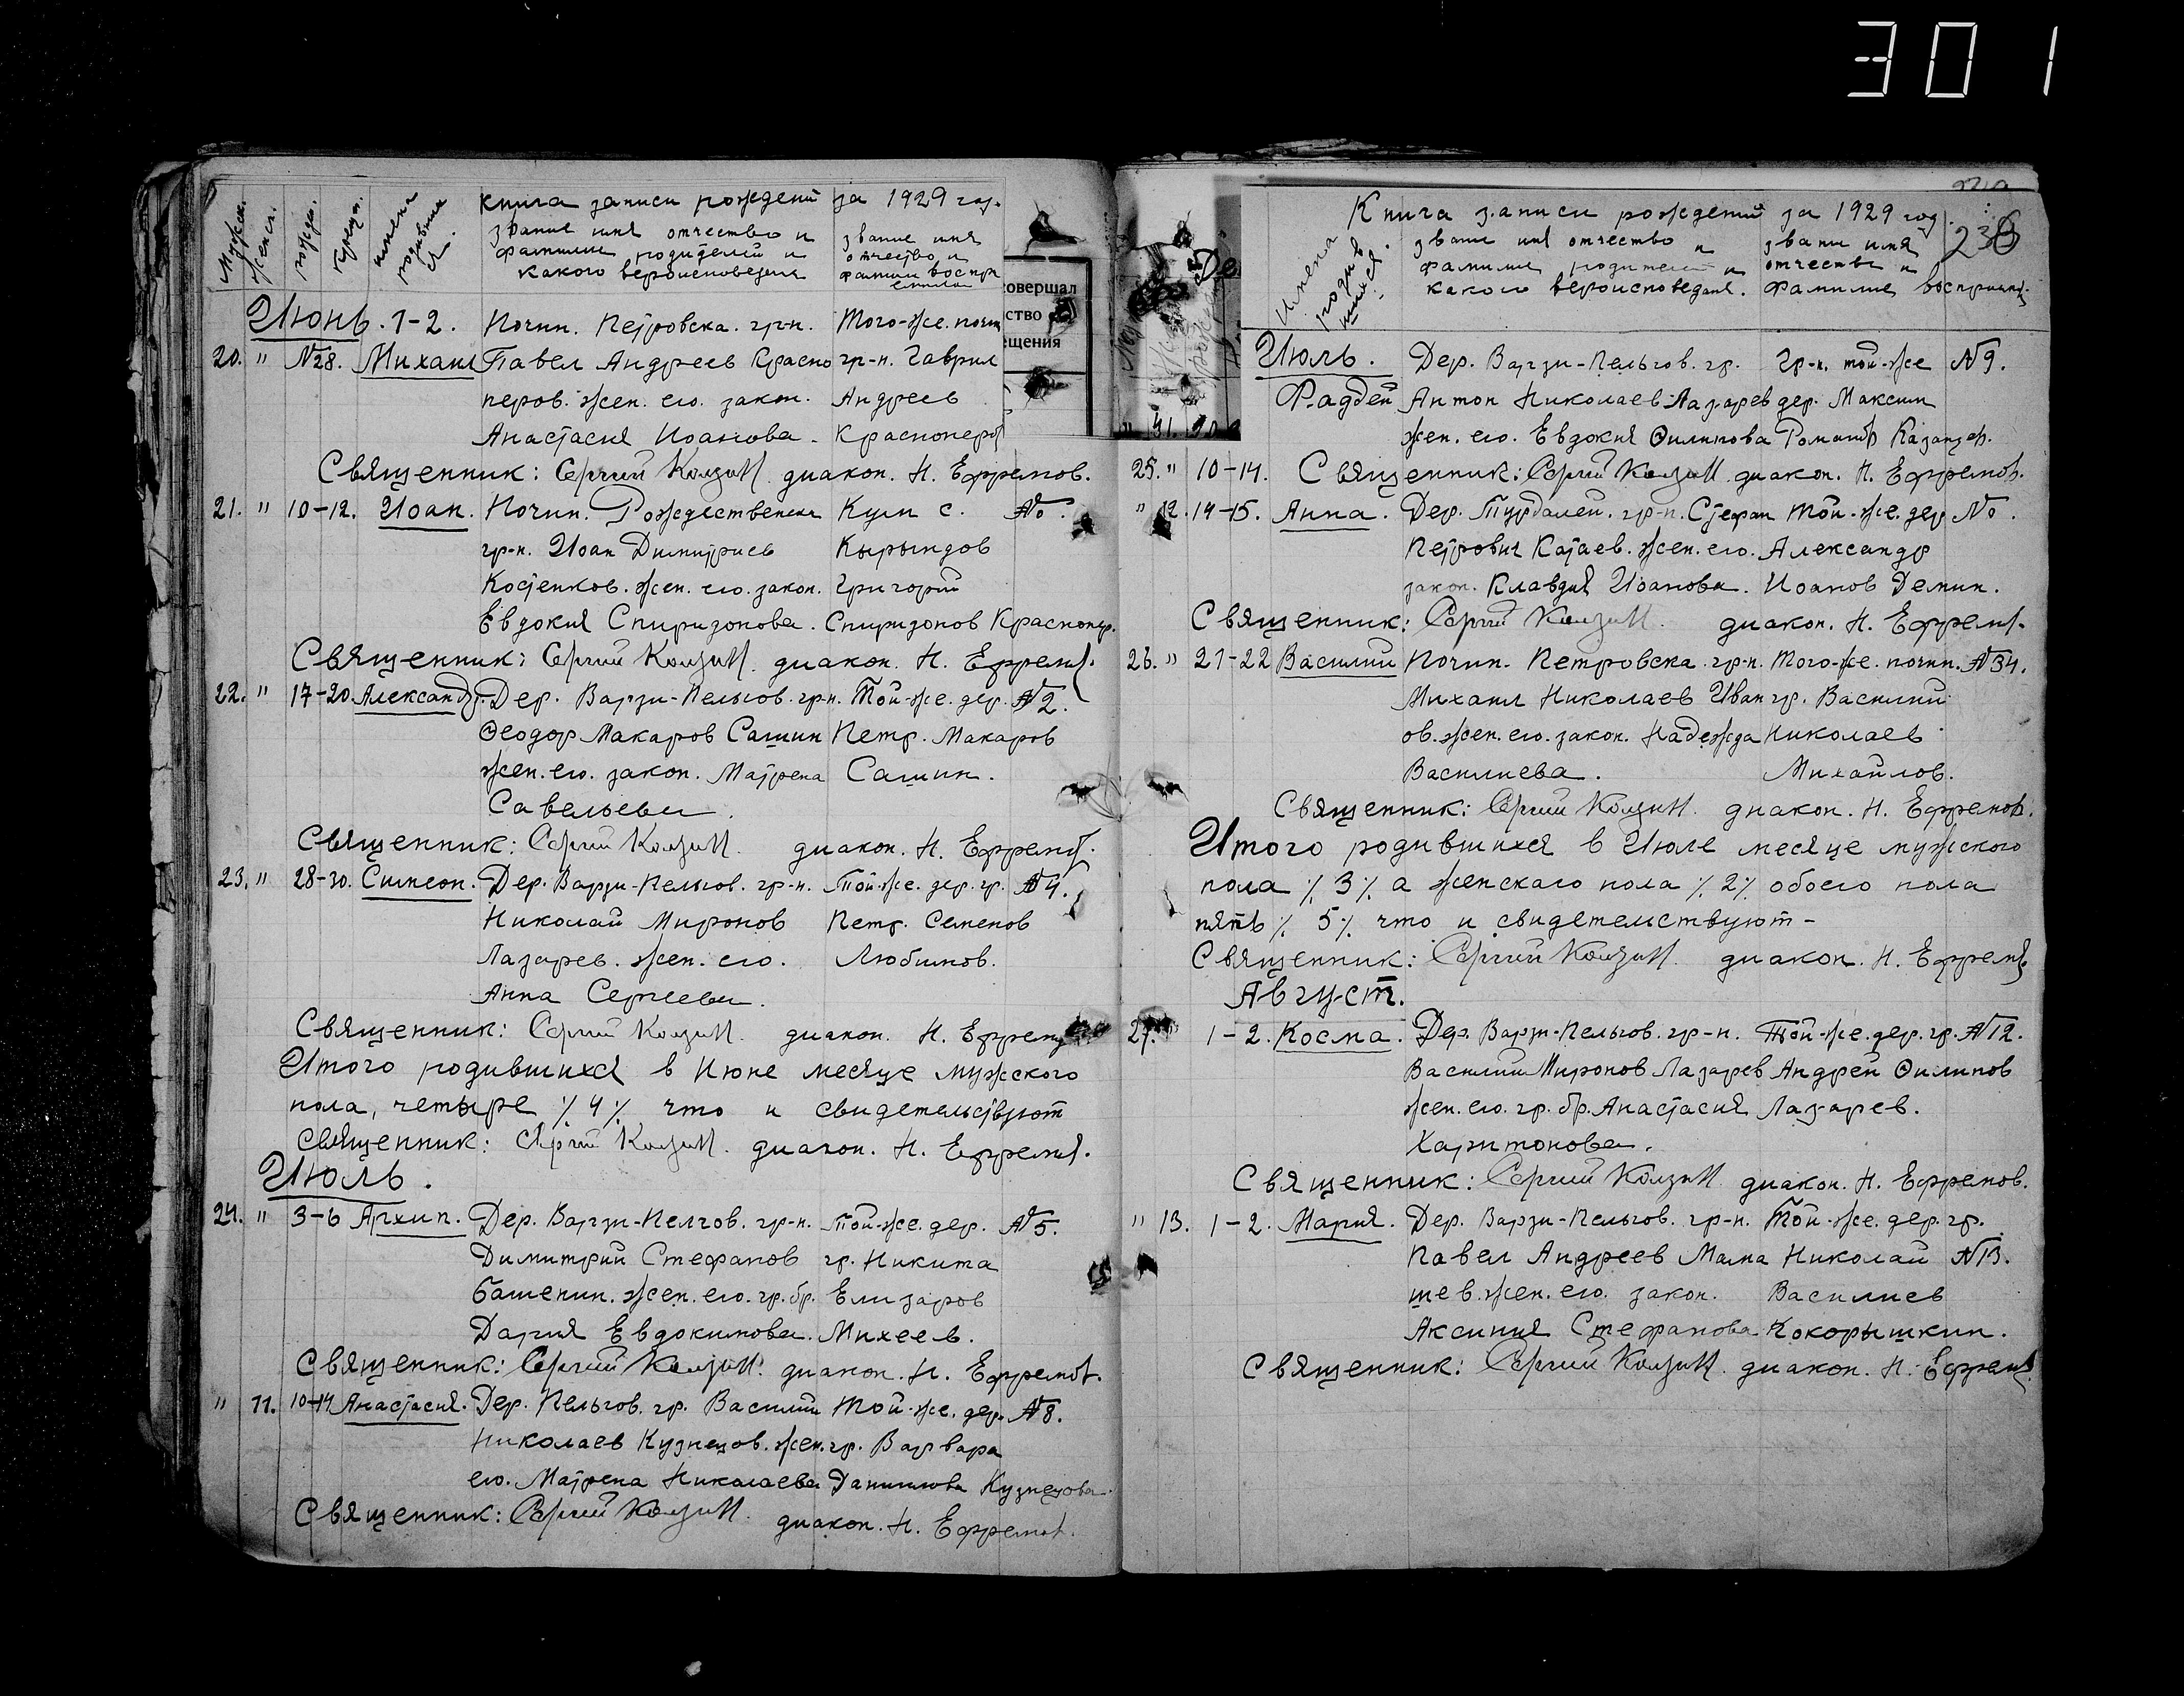 301
Мужск.
женск.
рожден.
Крещен.
имена родивших ся.
Книга записи рождений за 1929 год.
звание имя отчество и
фамилии родителей и
какого вероисповедания
звание имя
отчество и
фамилии воспр
емников
совершал
ство
ещения
Июнь. 1-2. Почин. Петровска. гр-н. Того-же. почин
20. " №28. Михаил Павел Андреев Красно гр-н. Гаврил
перов. жен. его. закон. Андреев
Анастасия Иоанова. Красноперов
Священник: Сергий диакон. Н. Ефремов.
21. " 10-12. Иоан. Почин. Рождественска Кулп с. №.
гр-н. Иоан Димитриев Кырындов
Костенков. жен. его. закон. Григорий
Евдокия Спиридонова. Спиридонов Краснопер.
Священник: Сергий диакон. Н. Ефремов.
22. " 17-20. Александр. Дер. Варзи-Пельгов. гр-н. Той-же. дер. №2.
Феодор Макаров Сашин Петр. Макаров
жен. его. закон. Матрена Сашин.
Савельева.
Священник: Сергий диакон. Н. Ефремов.
23. " 28-30. Симеон. Дер. Варзи-Пельгов. гр-н. Той-же. дер. гр. №4.
Николай Миронов Петр. Семенов
Лазарев. жен. его. Любимов.
Анна Сергеева.
Священник: Сергий диакон. Н. Ефремов
Итого родившихся в Июне месяце мужского
пола, четыре % 4 % что и свидетельствуют
Священник: Сергий диакон. Н. Ефремов.
Июль.
24. " 3-6 Архип. Дер. Варзи-Пелгов. гр-н. той-же. дер. №5.
Димитрий Стефанов гр. Никита
Башенин. жен. его. гр. бр. Елизаров
Дария Евдокимова. Михеев.
Священник: Сергий диакон. Н. Ефремов.
" 11. 10-14 Анастасия. Дер. Пельгов. гр. Василий Той-же. дер. №8.
Николаев Кузнецов. жен. гр. Варвара
его. Матрена Николаева Данилова Кузнецова.
Священник: Сергий диакон. Н. Ефремов.
Имена родив шихся.
Книга записи рождений за 1929 год.
звание имя отчество и
фамилии родителей и
какого вероисповедания.
звание имя
отчество и
фамилие восприемн.
238
Июль. Дер. Варзи-Пельгов. гр. Гр-н. той-же №9.
Фаддей Антон Николаев Лазарев дер. Максим
жен. его. Евдокия Филипова Романов Казанцев.
25. " 10-14. Священник: Сергий диакон. Н. Ефремов.
" 12. 14-15. Анна. Дер. Турдалей. гр-н. Стефан Той-же. дер №.
Петрович Катаев. жен. его. Александр
закон. Клавдия Иоанова. Иоанов Демин.
Священник: Сергий диакон. Н. Ефремов.
26. " 21-22 Василий Почин. Петровска. гр-н. Того-же. почин. №34.
Михаил Николаев Иван гр. Василий
ов. жен. его. закон. Надежда Николаев
Василиева. Михайлов.
Священник: Сергий диакон. Н. Ефремов.
Итого родившихся в Июле месяце мужского
пола % 3 % а женскаго пола % 2 % обоего пола
пять % 5 % что и свидетельствуют -
Священник: Сергий диакон. Н. Ефремов.
Август.
27. 1-2. Косма. Дер. Варзи-Пельгов. гр-н. Той-же. дер. гр. №12.
Василий Миронов Лазарев Андрей Филипов
жен. его. гр. бр. Анастасия Лазарев.
Харитонова.
Священник: Сергий диакон. Н. Ефремов.
" 13. 1-2. Мария. Дер. Варзи-Пельгов. гр-н. Той-же. дер. гр.
Павел Андреев Мама Николай №13.
шев. жен. его. закон. Василиев
Аксиния Стефанова Кокорышкин.
Священник: Сергий диакон. Н. Ефремов.